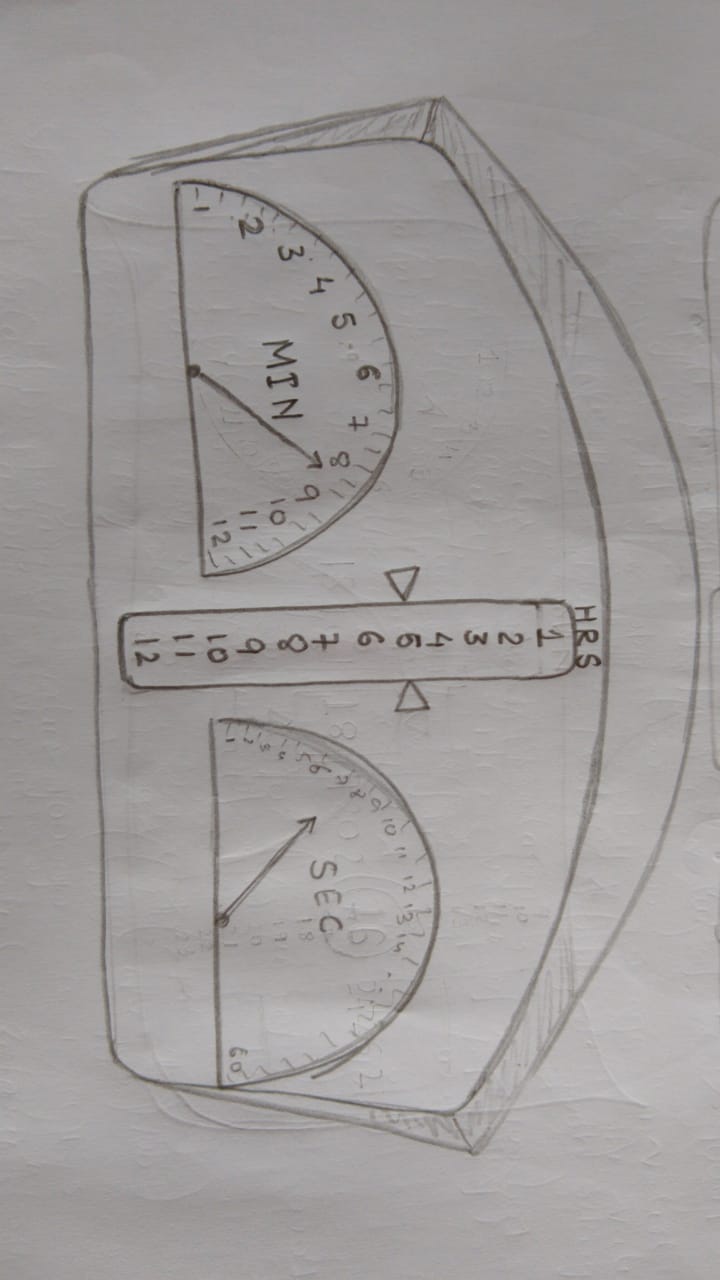 1 2 3 4 5 6 7 8 9 10 11 12
MIN
HRS
1
2
3
4
5
6
7
8
9
10
11
12
1 2 3 4 5 6 7 8 9 10 11 12 13 14 60
SEC